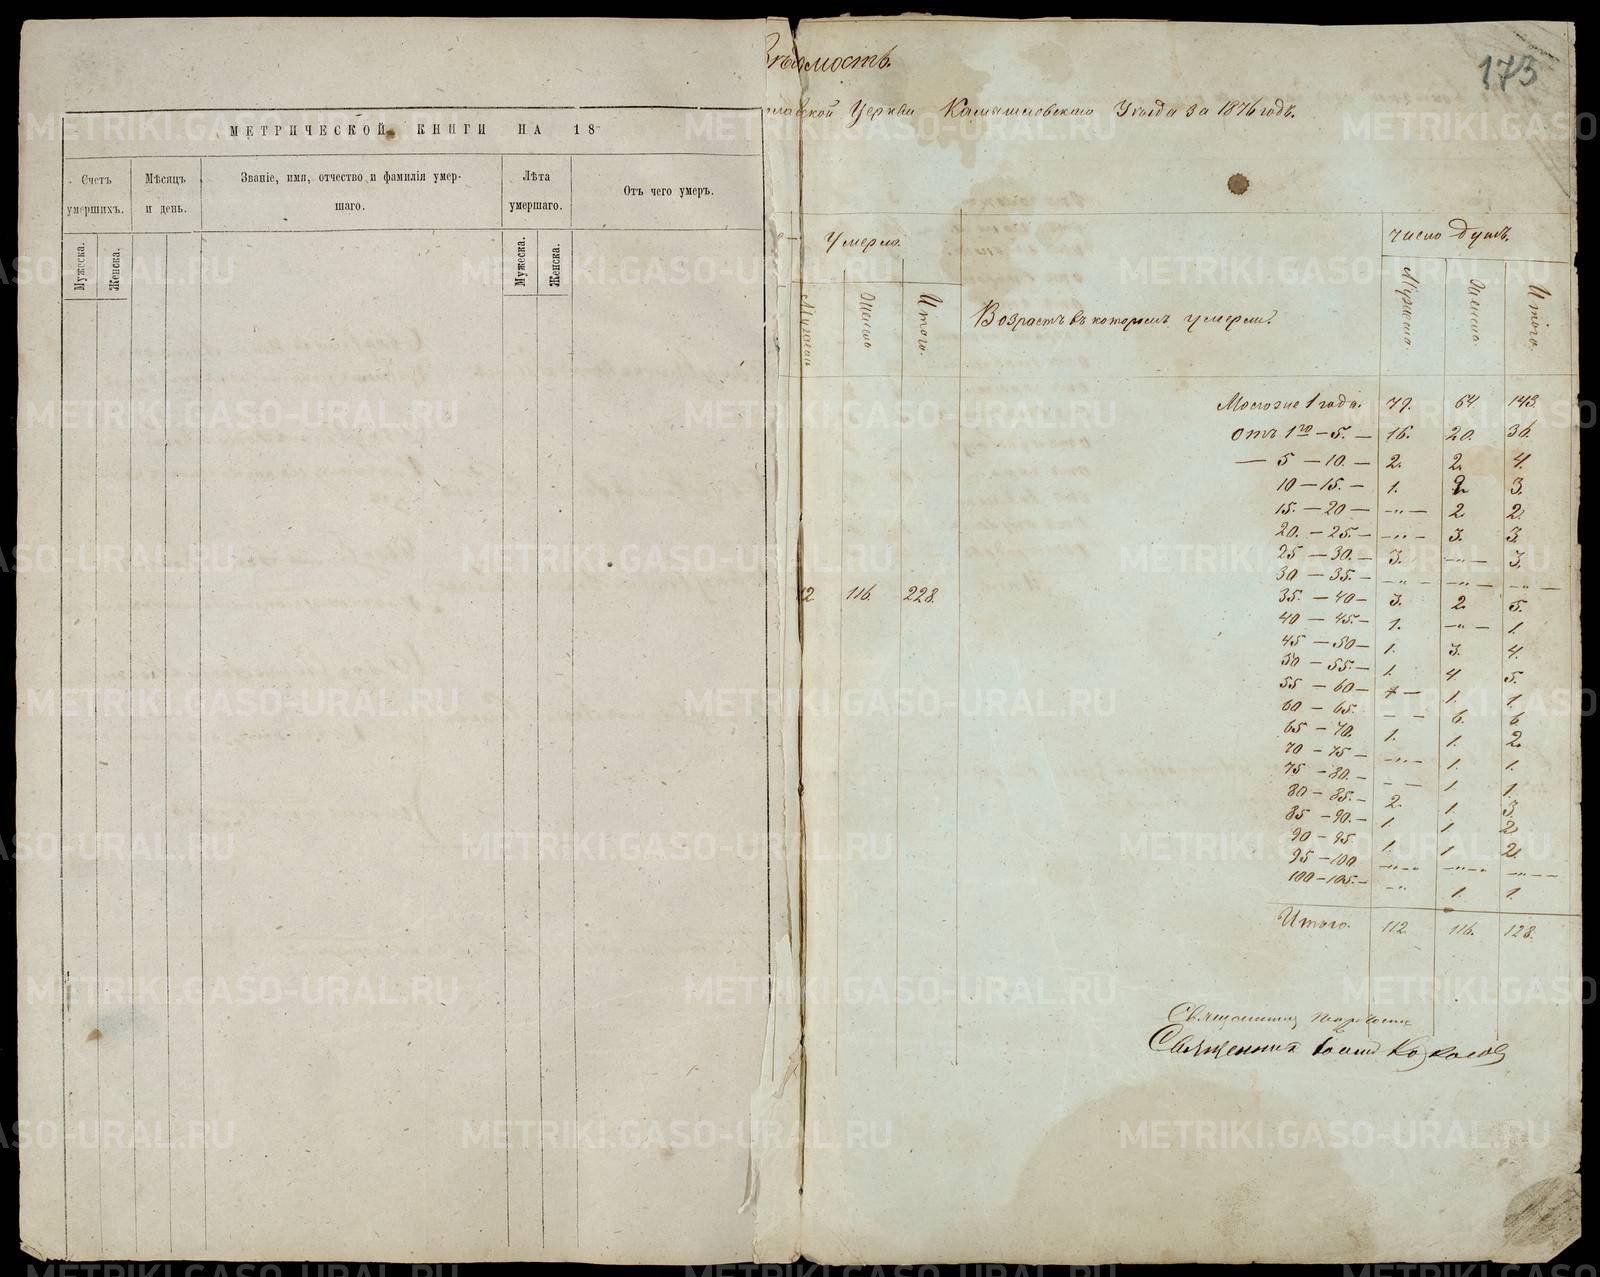 175
МЕТРИЧЕСКОЙ КНИГИ НА 18
Счетъ умершихъ.
Мѣсяцъ и день.
Званіе, имя, отчество и фамилія умершаго.
Лѣта умершаго.
Отъ чего умеръ.
Мужеска.
Женска.
Мужеска.
Женска.
Вѣдомость.
Церкви Камышловскаго Уѣзда за 1876 годъ.
Умерло.
Итого.
Возрастъ въ которомъ умерли.
число душъ.
Мужеска.
Женска.
Итого.
12 116. 228.
Моложе 1 года. 79. 64. 143.
Отъ 1го – 5. – 16. 20. 36.
— 5 – 10. – 2. 2. 4.
10 – 15. – 1. 2 3.
15. – 20 – –„– 2. 2.
20. – 25. – –„– 3. 3.
25 – 30. – 3. –„– 3.
30 – 35. – –„– –„– –„–
35. – 40 – 3. 2. 5.
40 – 45. – 1. –„– 1.
45 – 50 – 1. 3. 4.
50 – 55. – 1. 4. 5.
55 – 60 – – 1. 1.
60 – 65. – – 6. 6
65 – 70. 1. 1. 2.
70 – 75 – –„– 1. 1.
75 – 80. – – – 1. 1.
80 – 85. – 2. 1. 3.
85 – 90. – 1. 1. 2
90 – 95. 1. 1. 2.
95 – 100 –„– –„– –„–
100 – 105. – –„ 1. 1.
Итого. 112 116. 128.
Священникъ
Священник Іоанн
METRIKI.GASO-URAL.RU